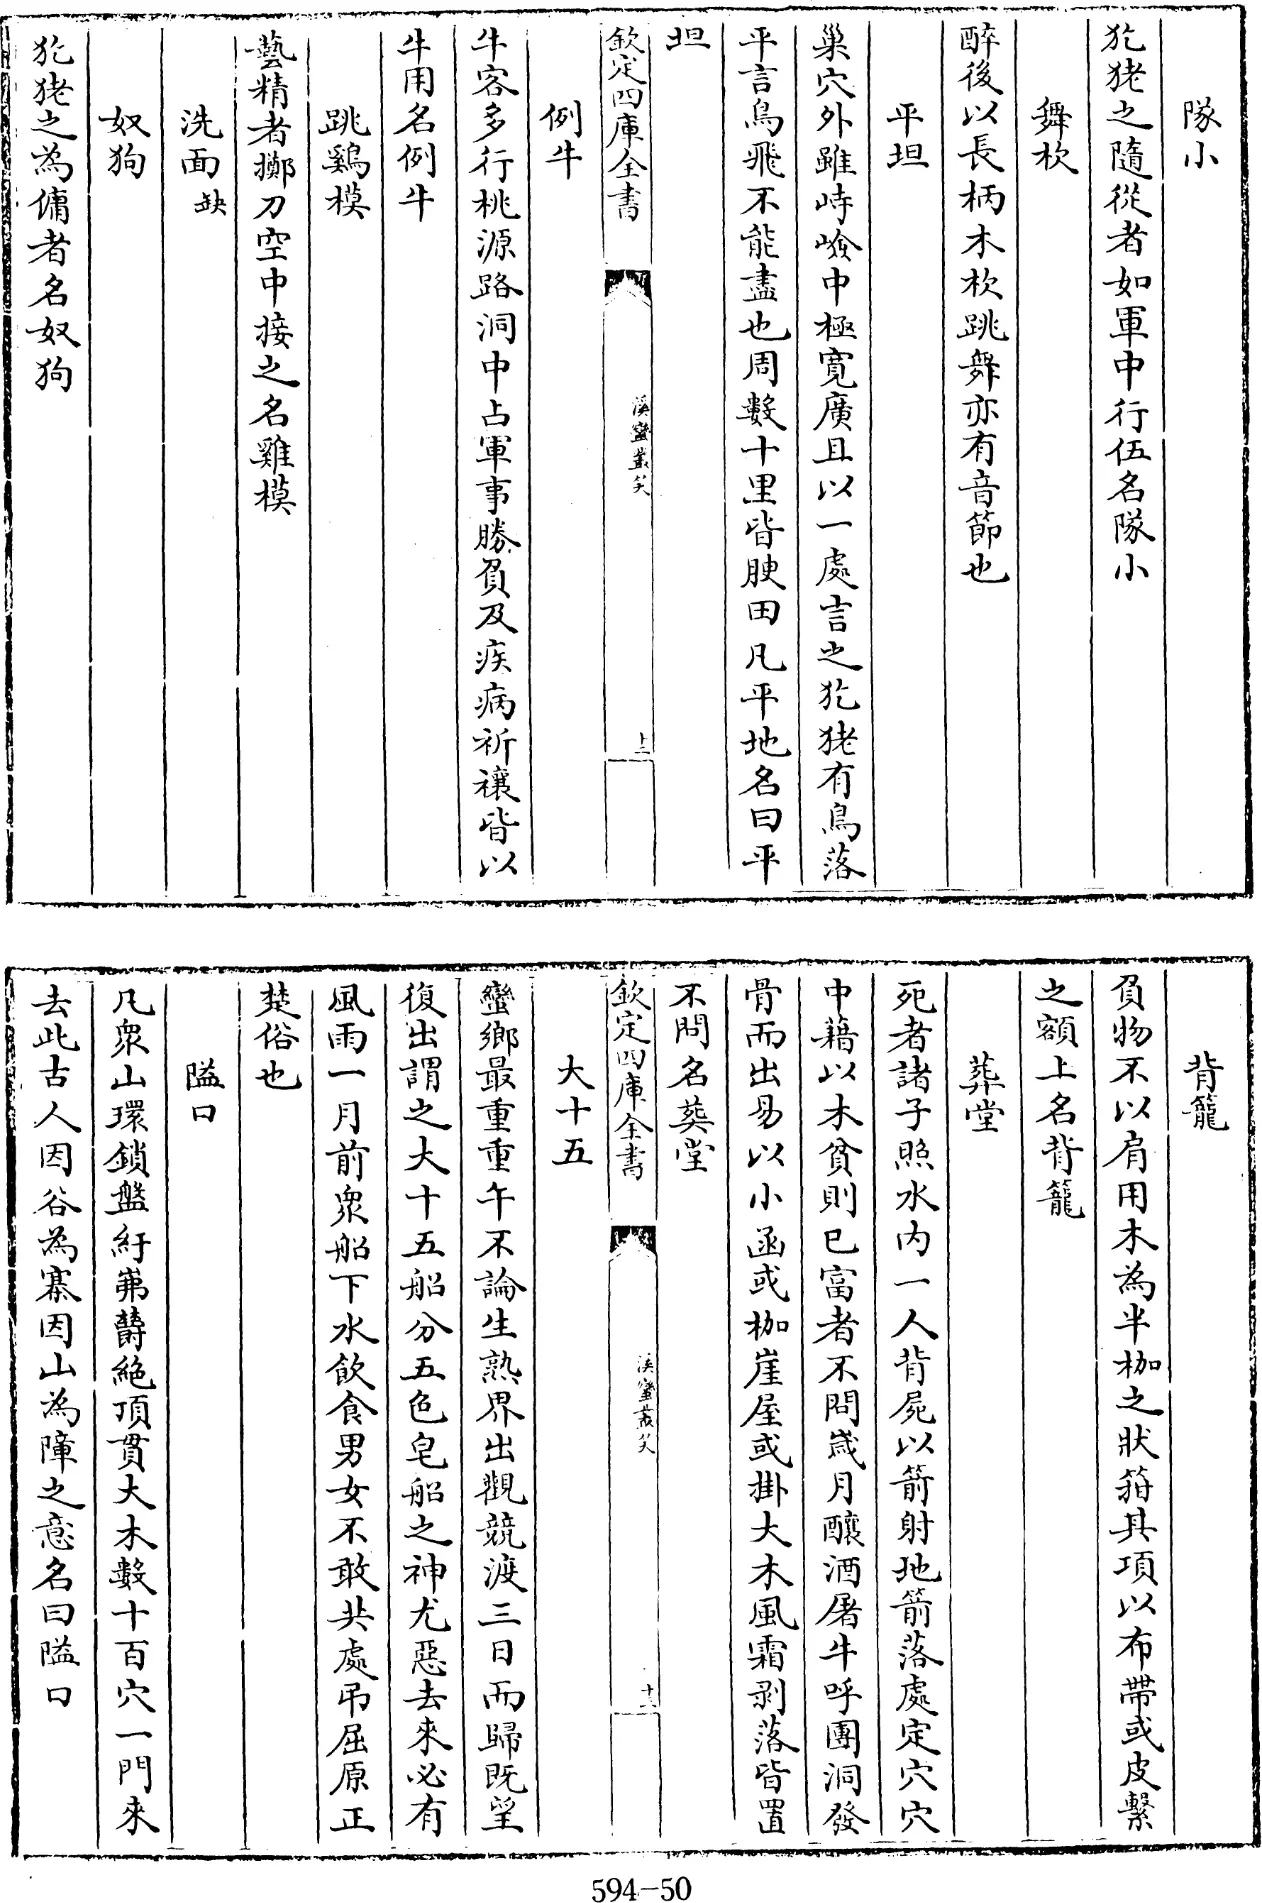 隊小
犵狫之隨從者如軍中行伍名隊小
舞枚
醉後以長柄木枚跳舞亦有音節也
平坦
巢穴外雖峙嶮中極寬廣且以一處言之犵狫有鳥落
平言鳥飛不能盡也周數十里皆腴田凡平地名曰平
坦
欽定四庫全書
溪蠻叢笑
十二
例牛
牛客多行桃源路洞中占軍事勝負及疾病祈禳皆以
牛用名例牛
跳鷄模
藝精者擲刀空中接之名雞模
洗面缺
奴狗
犵狫之為傭者名奴狗
背籠
負物不以肩用木為半枷之狀箝其項以布帶或皮繫
之額上名背籠
葬堂
死者諸子照水内一人背屍以箭射地箭落處定穴穴
中藉以木貧則已富者不問歲月釀酒屠牛呼團洞發
骨而出易以小函或枷崖屋或掛大木風霜剥落皆置
不問名葬堂
欽定四庫全書
溪蠻叢笑
十三
大十五
蠻鄉最重重午不論生熟界出觀競渡三日而歸既望
復出謂之大十五船分五色皂船之神尤惡去來必有
風雨一月前衆船下水飲食男女不敢共處吊屈原正
楚俗也
隘口
凡衆山環鎖盤紆岪鬱絶頂貫大木數十百穴一門來
去此古人因谷為寨因山為障之意名曰隘口
594-50